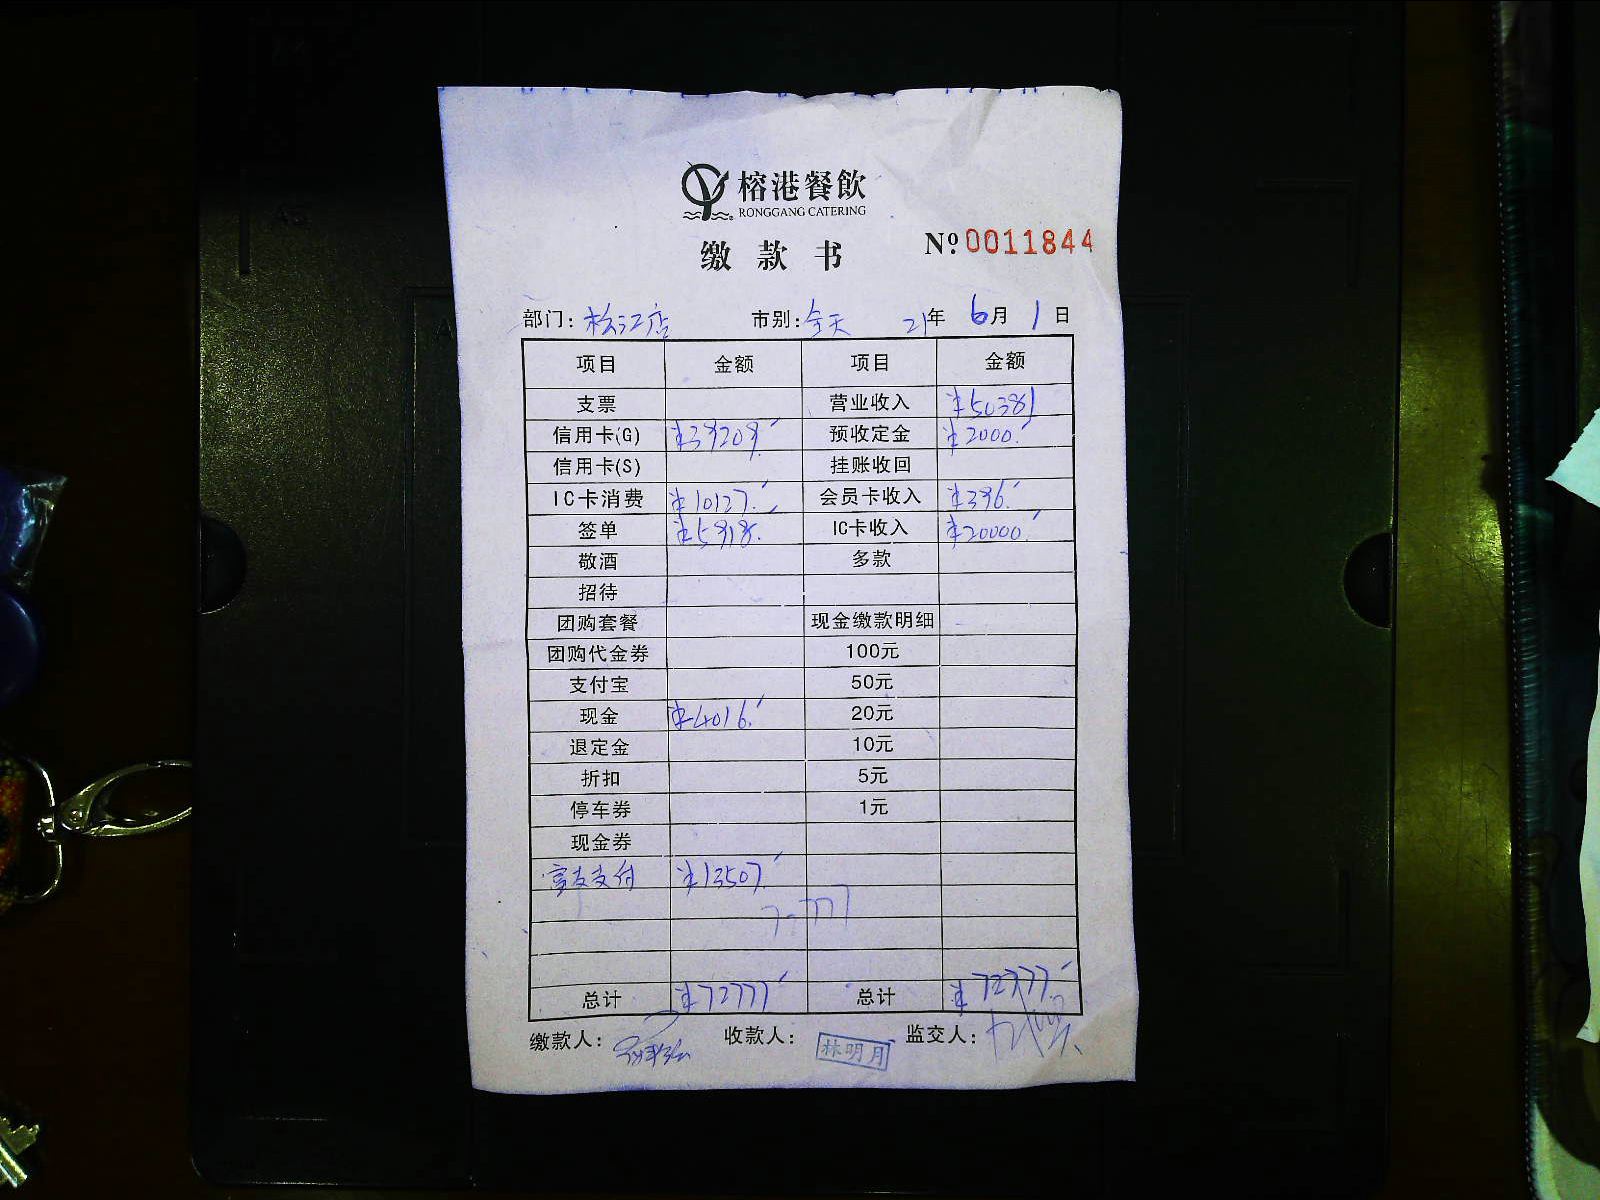 榕港餐飲
RONGGANG CATERING
缴款书
Nº 0011844
部门: 松江店 市别: 全天 21年 6月 1日
项目 金额 项目 金额
支票 营业收入 ¥50381
信用卡(G) ¥39209. 预收定金 ¥2000.
信用卡(S) 挂账收回
IC卡消费 ¥10127. 会员卡收入 ¥396.
签单 ¥5918. IC卡收入 ¥20000.
敬酒 多款
招待
团购套餐 现金缴款明细
团购代金券 100元
支付宝 50元
现金 ¥4016. 20元
退定金 10元
折扣 5元
停车券 1元
现金券
富友支付 ¥13507.
总计 ¥72777 总计 ¥72777.
缴款人: 收款人: 林明月 监交人: